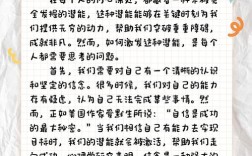 全发掘的潜能，这种潜能能够在关键时刻为我
们提供无穷的动力，帮助我们突破重重障碍，
成就非凡。然而，如何激发这种潜能，是每个
人都需要思考的问题。
首先，我们需要对自己有一个清晰的认识
和坚定的信念。很多时候，我们对自己的能力
存在疑虑，认为自己无法完成某些事情。然
而，正如美国作家爱默生所说：“自信是成功
的最大秘密。”当我们相信自己有能力去实现
目标时，我们的潜能就会被激活，帮助我们走